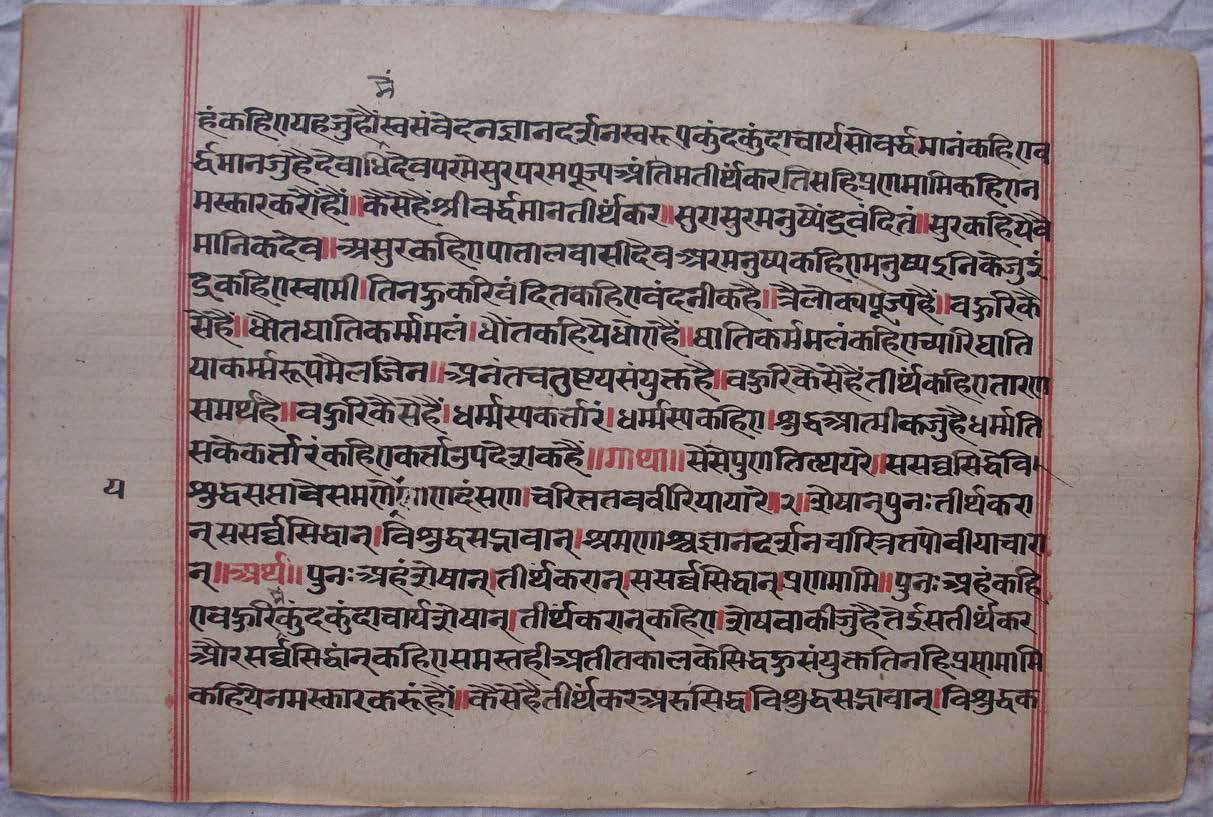 मैं
हं कहिए यह जु हौं स्वसंवेदनज्ञानदर्शनस्वरूप कुंदकुंदाचार्य सौ वर्द्धमानं कहिए व
र्द्धमान जु है देवाधिदेव परमेसुर परमपूज्य अंतिम तीर्थंकर तिसहि प्रणमामि कहिए न
मस्कार करौं हौं॥ कैसे है श्रीवर्द्धमान तीर्थंकर॥ सुरासुरमनुष्येंद्रवंदितं॥ सुर कहिये वै
मानिक देव॥ असुर कहिए पातालवासी देव अर मनुष्य कहिए मनुष्य इनिके जु इं
द्र कहिए स्वामी। तिनहु करि वंदित कहिए वंदनीक है॥ त्रैलोक्यपूज्य हैं॥ बहुरि कै
से हैं॥ धौतघातिकर्म्ममलं। धौत कहिये धोए है॥ घातिकर्ममलं कहिए च्यारि घाति
याकर्म्मरूप मैल जिन॥ अनंतचतुष्टयसंयुक्त है॥ बहुरि कैसे हैं तीर्थं कहिए तारण
समर्थ है॥ बहुरि कैसे हैं। धर्म्मस्य कर्त्तारं। धर्म्मस्य कहिए। शुद्ध आत्मीक जु है धर्म्म ति
सके कर्त्तारं कहिए कर्त्ता उपदेशक हैं॥ गाथा॥ सेसे पुण तित्थयरे॥ ससव्वसिद्धे वि
य
शुद्धसप्तावे समणे णाणदंसण। चरित्ततववीरियायारे॥२॥ शेषान् पुनः तीर्थकरा
न् ससर्व्वसिद्धान्। विशुद्धसद्भावान्। श्रमणाश्च ज्ञानदर्शनचारित्रतपोवीर्याचारा
न्॥ अर्थ॥ पुनः अहं शेषान्। तीर्थकरान्। ससर्व्वसिद्धान्। प्रणमामि॥ पुनः अहं कहि
ए बहुरि मैं कुंदकुंदाचार्य शेषान्। तीर्थकरान् कहिए। शेष वाकी जु है तेईस तीर्थंकर
और सर्व्वसिद्धान् कहिए समस्त ही अतीतकाल के सिद्धहु संयुक्त तिनहि प्रणमामि
कहिये नमस्कार करूं हौं॥ कैसे है तीर्थंकर अरु सिद्ध। विशुद्धसद्भावान्। विशुद्ध क